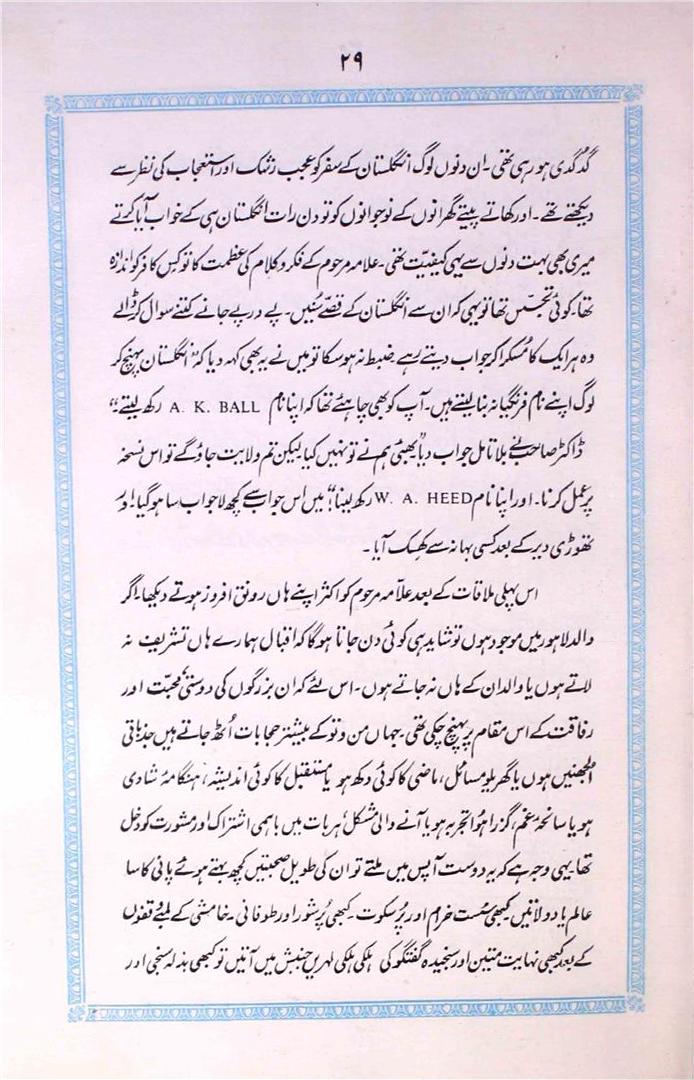 ۲۹
گدگدی ہو رہی تھی۔ ان دنوں لوگ انگلستان کے سفر کو عجیب رشک اور استعجاب کی نظر سے
دیکھتے تھے۔ اور کھاتے پیتے گھرانوں کے نوجوانوں کو تو دن رات انگلستان ہی کے خواب آیا کرتے
میری بھی بہت دنوں سے یہی کیفیت تھی۔ علامہ مرحوم کے فکر و کلام کی عظمت کا تو کس کافر کو اندازہ
تھا۔ کوئی تجسّس تھا تو یہی کہ ان سے انگلستان کے قصّے سُنیں۔ پے در پے جانے کتنے سوال کر ڈالے
وہ ہر ایک کا مُسکرا کر جواب دیتے رہے ضبط نہ ہو سکا تو میں نے یہ بھی کہہ دیا کہ ”انگلستان پہنچ کر
لوگ اپنے نام فرنگیانہ بنا لیتے ہیں۔ آپ کو بھی چاہئے تھا کہ اپنا نام A. K. BALL رکھ لیتے“
ڈاکٹر صاحب نے بلا تامل جواب دیا ”بھئی ہم نے تو نہیں کیا لیکن تم ولایت جاؤ گے تو اس نسخہ
پر عمل کرنا۔ اور اپنا نام W. A. HEED رکھ لینا“ میں اس جواب سے کچھ لاجواب سا ہو گیا۔ اور
تھوڑی دیر کے بعد کسی بہانہ سے کھسک آیا۔
اس پہلی ملاقات کے بعد علّامہ مرحوم کو اکثر اپنے ہاں رونق افروز ہوتے دیکھا۔ اگر
والد لاہور میں موجود ہوں تو شاید ہی کوئی دن جاتا ہو گا کہ اقبال ہمارے ہاں تشریف نہ
لاتے ہوں یا والد ان کے ہاں نہ جاتے ہوں۔ اس لئے کہ ان بزرگوں کی دوستی، محبّت اور
رفاقت کے اس مقام پر پہنچ چکی تھی۔ جہاں من و تو کے بیشتر حجابات اُٹھ جاتے ہیں جذباتی
الجھنیں ہوں یا گھریلو مسائل، ماضی کا کوئی دکھ ہو یا مستقبل کا کوئی اندیشہ، ہنگامۂ شادی
ہو یا سانحۂ غم، گزرا ہوا تجربہ ہو یا آنے والی مشکل، ہر بات میں باہمی اشتراک اور مشورت کو دخل
تھا۔ یہی وجہ ہے کہ یہ دوست آپس میں ملتے تو ان کی طویل صحبتیں کچھ بہتے ہوئے پانی کا سا
عالم یاد دلاتیں کبھی سُست خرام اور پُر سکوت۔ کبھی پُرشور اور طوفانی۔ خامشی کے لمبے وقفوں
کے بعد کبھی نہایت متین اور سنجیدہ گفتگو کی ہلکی ہلکی لہریں جنبش میں آتیں تو کبھی بذلہ سنجی اور